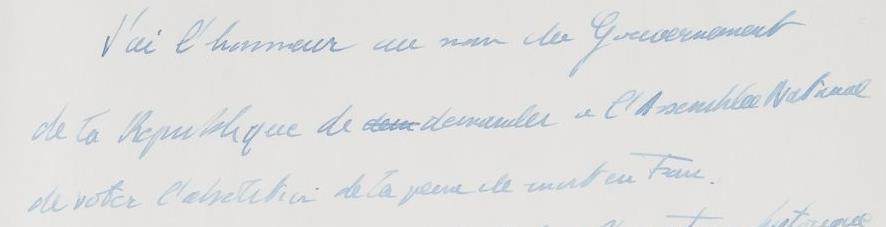 J'ai l'honneur au nom du Gouvernement
de la République de dem demander à l'Assemblée Nationale
de voter l'abolition de la peine de mort en Fran.
historique